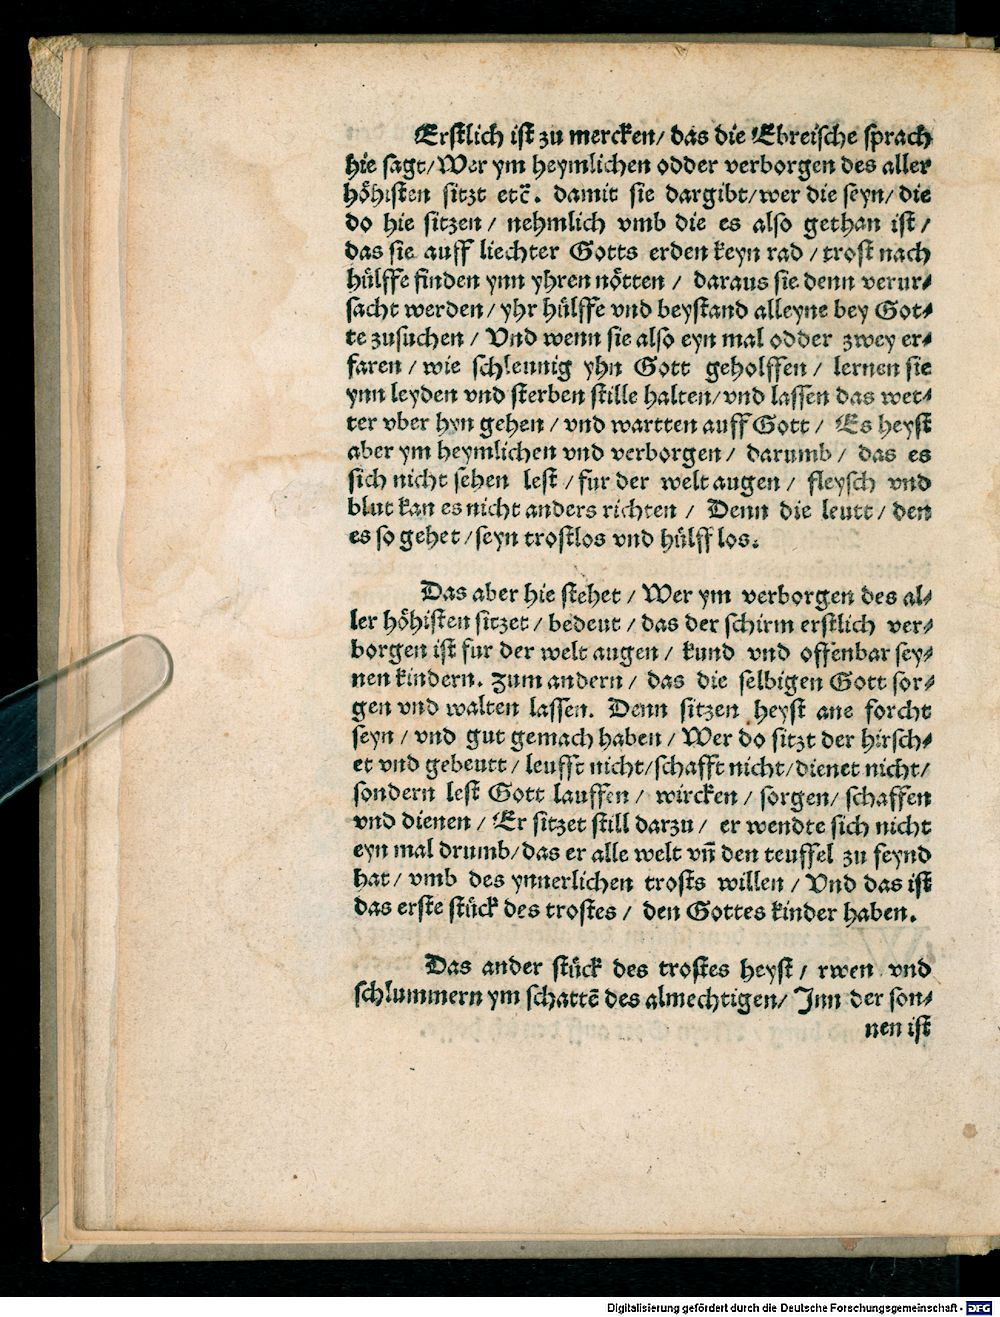 Erstlich ist zu mercken/ das die Ebreische sprach
hie sagt/Wer ym heymlichen odder verborgen des aller
höhisten sitzt etc̄. damit sie dargibt/wer die seyn/ die
do hie sitzen / nehmlich vmb die es also gethan ist /
das sie auff liechter Gotts erden keyn rad / trost nach
hülffe finden ynn yhren nötten / daraus sie denn verur⸗
sacht werden/ yhr hülffe vnd beystand alleyne bey Got⸗
te zusuchen / Vnd wenn sie also eyn mal odder zwey er⸗
faren / wie schleunig yhn Gott geholffen / lernen sie
ynn leyden vnd sterben stille halten/vnd lassen das wet⸗
ter vber hyn gehen / vnd wartten auff Gott / Es heyst
aber ym heymlichen vnd verborgen / darumb / das es
sich nicht sehen lest / fur der welt augen / fleysch vnd
blut kan es nicht anders richten / Denn die leutt / den
es so gehet /seyn trostlos vnd hülff los.
Das aber hie stehet / Wer ym verborgen des al⸗
ler höhisten sitzet / bedeut / das der schirm erstlich ver⸗
borgen ist fur der welt augen / kund vnd offenbar sey⸗
nen kindern. Zum andern / das die selbigen Gott sor⸗
gen vnd walten lassen. Denn sitzen heyst ane forcht
seyn / vnd gut gemach haben / Wer do sitzt der hirsch⸗
et vnd gebeutt / leufft nicht/schafft nicht/dienet nicht/
sondern lest Gott lauffen / wircken / sorgen/ schaffen
vnd dienen / Er sitzet still darzu / er wendte sich nicht
eyn mal drumb/das er alle welt vn̄ den teuffel zu feynd
hat / vmb des ynnerlichen trosts willen / Vnd das ist
das erste stück des trostes / den Gottes kinder haben.
Das ander stück des trostes heyst / rwen vnd
schlummern ym schattē des almechtigen/ Inn der son⸗
nen ist
Digitalisierung gefördert durch die Deutsche Forschungsgemeinschaft - DFG